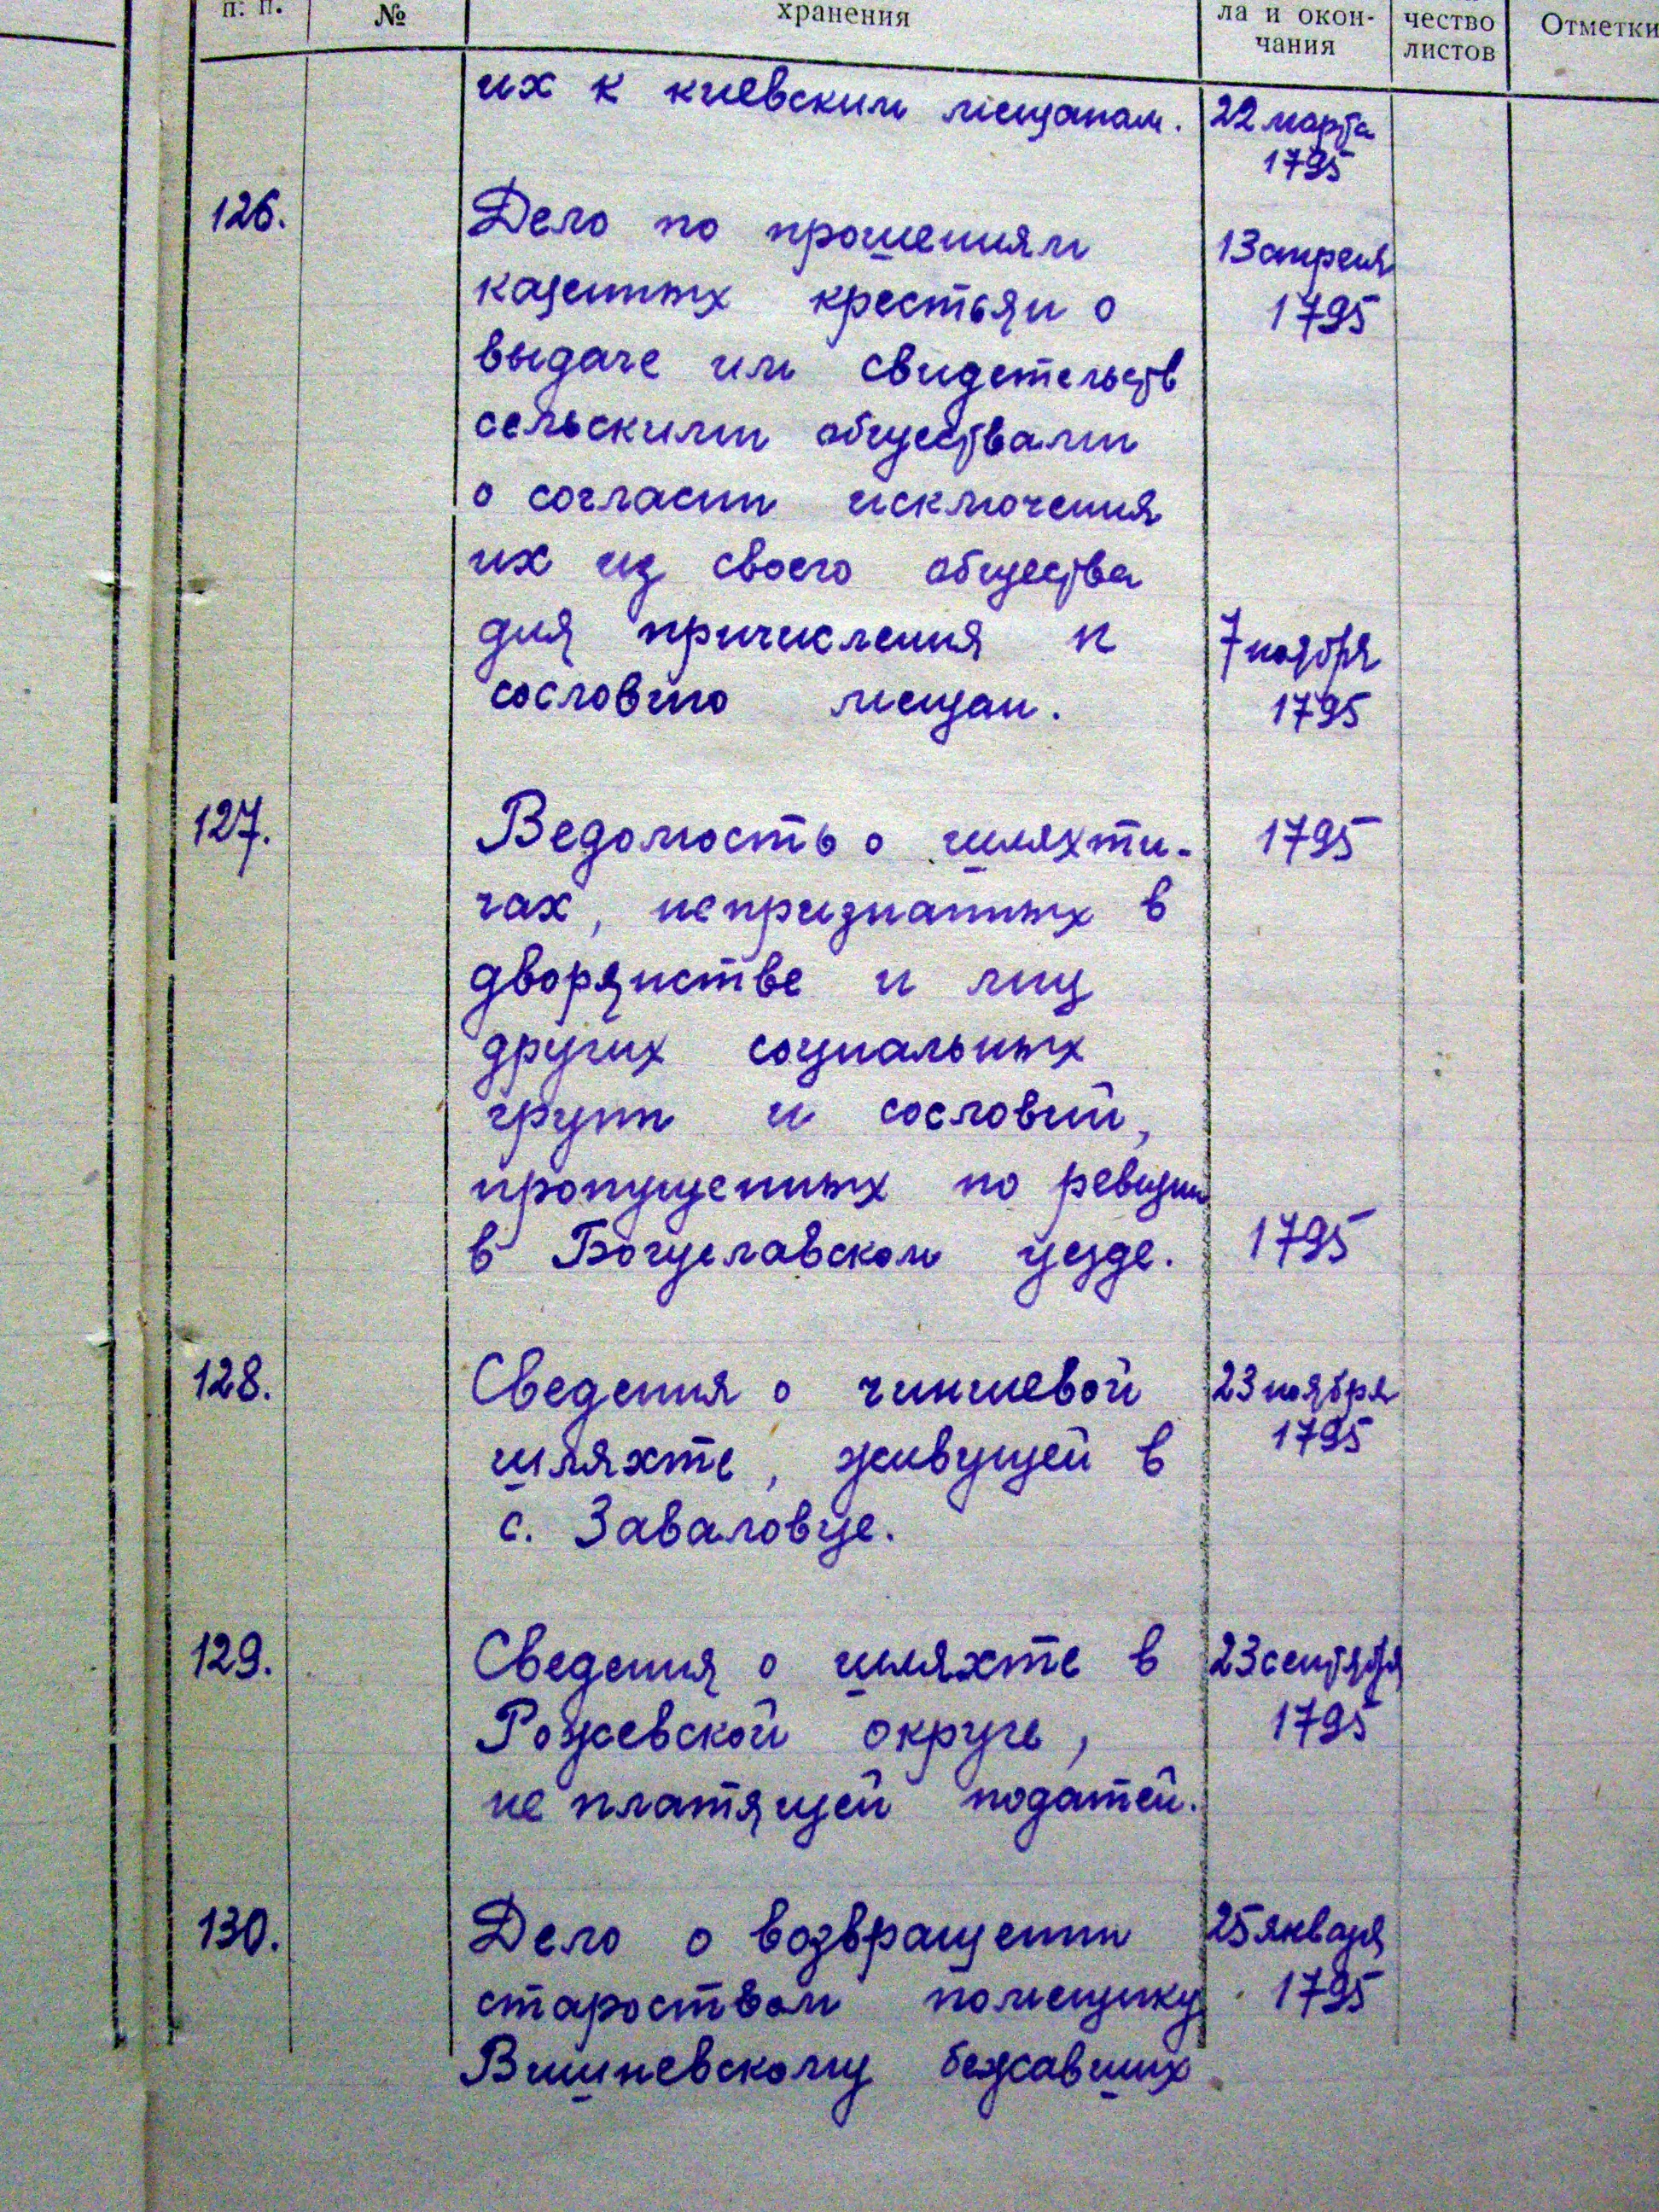 п. п. № хранения ла и окон- чество Отметки
чания листов
их к киевским мещанам. 22 марта
1795
126. Дело по прошениям 13 апреля
казенных крестьян о 1795
выдаче им свидетельств
сельскими обществами
о согласии исключения
их из своего общества
для причисления к 7 ноября
сословию мещан. 1795
127. Ведомость о шляхти- 1795
чах, непризнанных в
дворянстве и лиц
других социальных
групп и сословий,
пропущенных по ревизии
в Богуславском уезде. 1795
128. Сведения о чиншевой 23 ноября
шляхте, живущей в 1795
с. Заваловце.
129. Сведения о шляхте в 23 сентября
Рожевской округе, 1795
не платящей податей.
130. Дело о возвращении 25 января
староством помещику 1795
Вишневскому бежавших